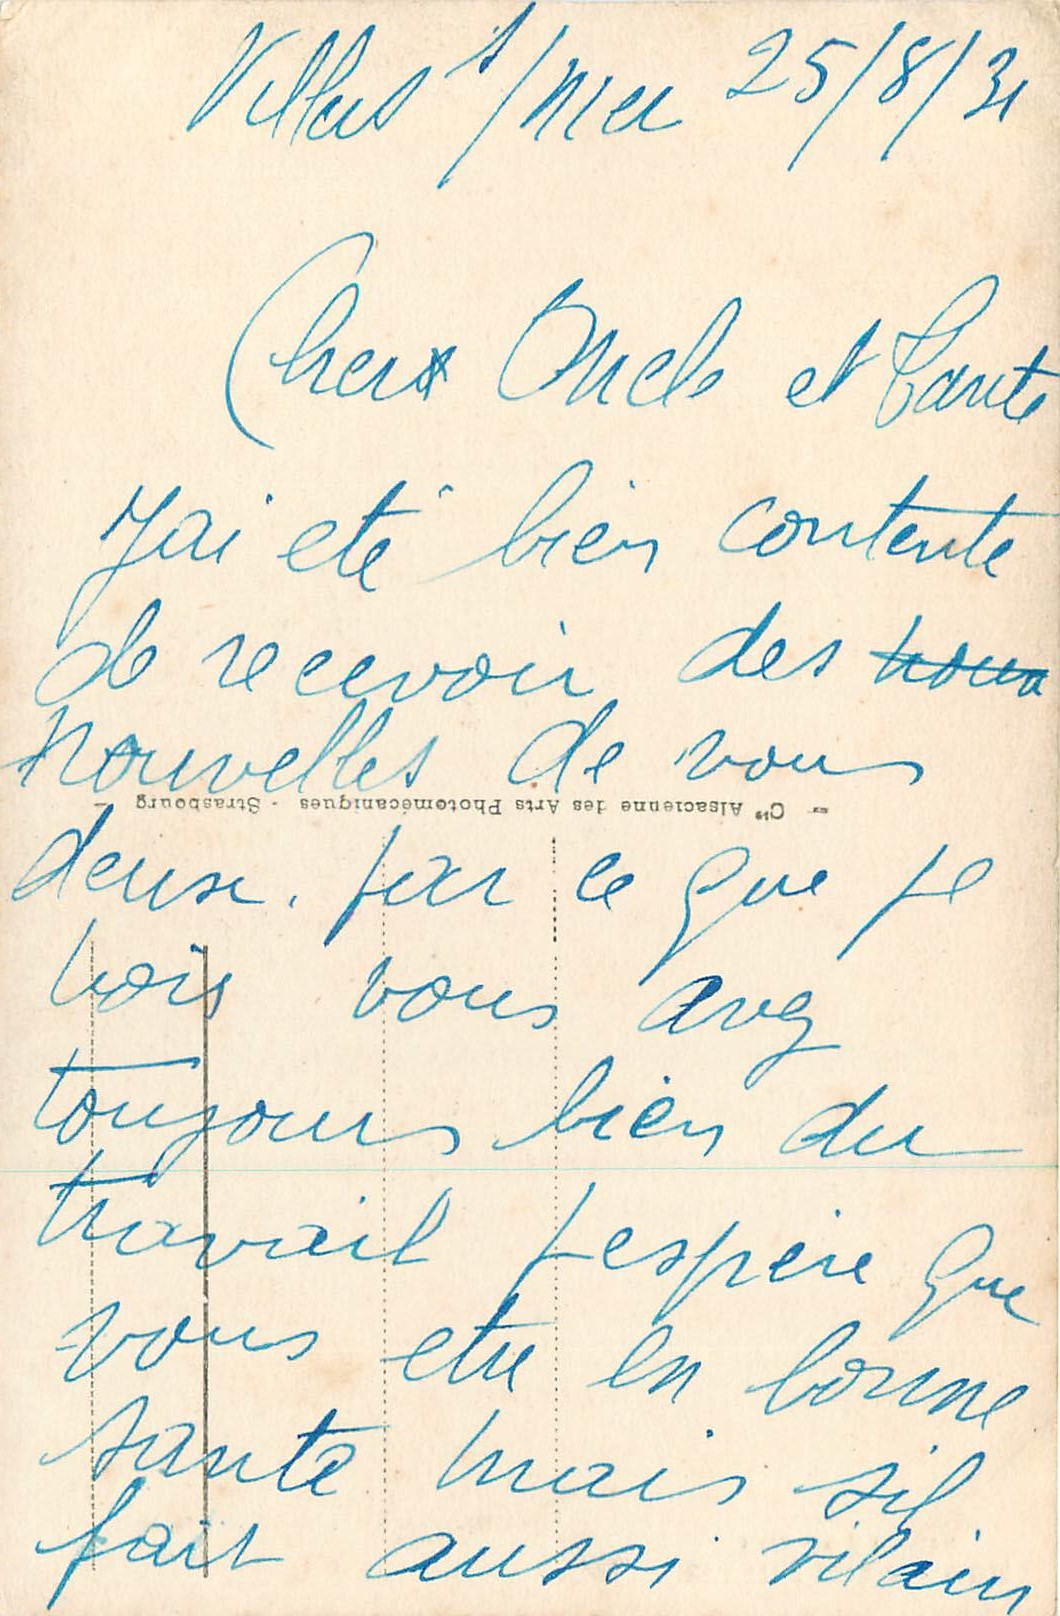 Villers s/mer 25/8/31
Chers Oncle et Tante
J'ai été bien contente
de recevoir des nouv
nouvelles de vous
Cie Alsacienne des Arts Photomécaniques - Strasbourg
deux. par ce que je
vois vous avez
toujours bien du
travail j espère que
vous etre en bonne
sante mais sil
fait aussi vilain